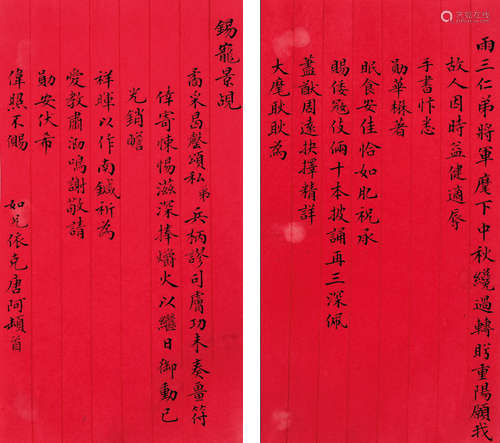 雨三仁弟將軍麾下中秋纔過轉盻重陽願我
故人因時益健適辱
手書忭悉
勛華楙著
眠食安佳恰如肥祝承
賜倭冦伎倆十本披誦再三深佩
藎猷周遠抉擇精詳
大麾耿耿為
錫寵景覘
喬采昌鏖頌私弟兵柄謬司膚功未奏畺符
倖寄悚惕滋深捧爝火以繼日御動已
光鎖
祥暉以作南鍼祈為
愛教肅泐鳴謝敬請
勛安伏希
偉照不賜
如兄依克唐阿頓首